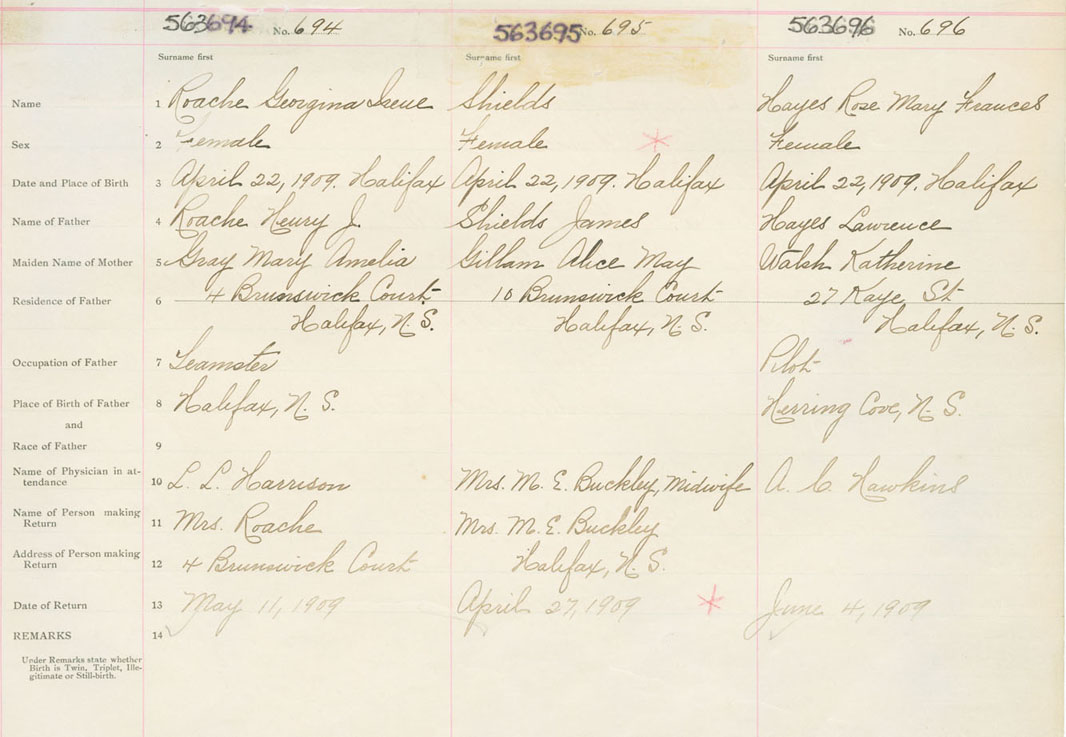 563694 No. 694 563695 No. 695 563696 No. 696
Surname first Surname first Surname first
Name 1 Roache Georgina Irene Shields Hayes Rose Mary Frances
Sex 2 Female Female Female
Date and Place of Birth 3 April 22, 1909. Halifax April 22, 1909. Halifax April 22, 1909. Halifax
Name of Father 4 Roache Henry J. Shields James Hayes Lawrence
Maiden Name of Mother 5 Gray Mary Amelia Gillam Alice May Walsh Katherine
Residence of Father 6 4 Brunswick Court 10 Brunswick Court 27 Kaye St
Halifax, N. S. Halifax, N. S. Halifax, N. S.
Occupation of Father 7 Teamster Pilot
Place of Birth of Father 8 Halifax, N. S. Herring Cove, N. S.
and
Race of Father 9
Name of Physician in at-
tendance 10 L. L. Harrison Mrs. M. E. Buckley, Midwife A. C. Hawkins
Name of Person making
Return 11 Mrs. Roache Mrs. M. E. Buckley
Address of Person making
Return 12 4 Brunswick Court Halifax, N. S.
Date of Return 13 May 11, 1909 April 27, 1909 June 4, 1909
REMARKS 14
Under Remarks state whether
Birth is Twin, Triplet, Ille-
gitimate or Still-birth.